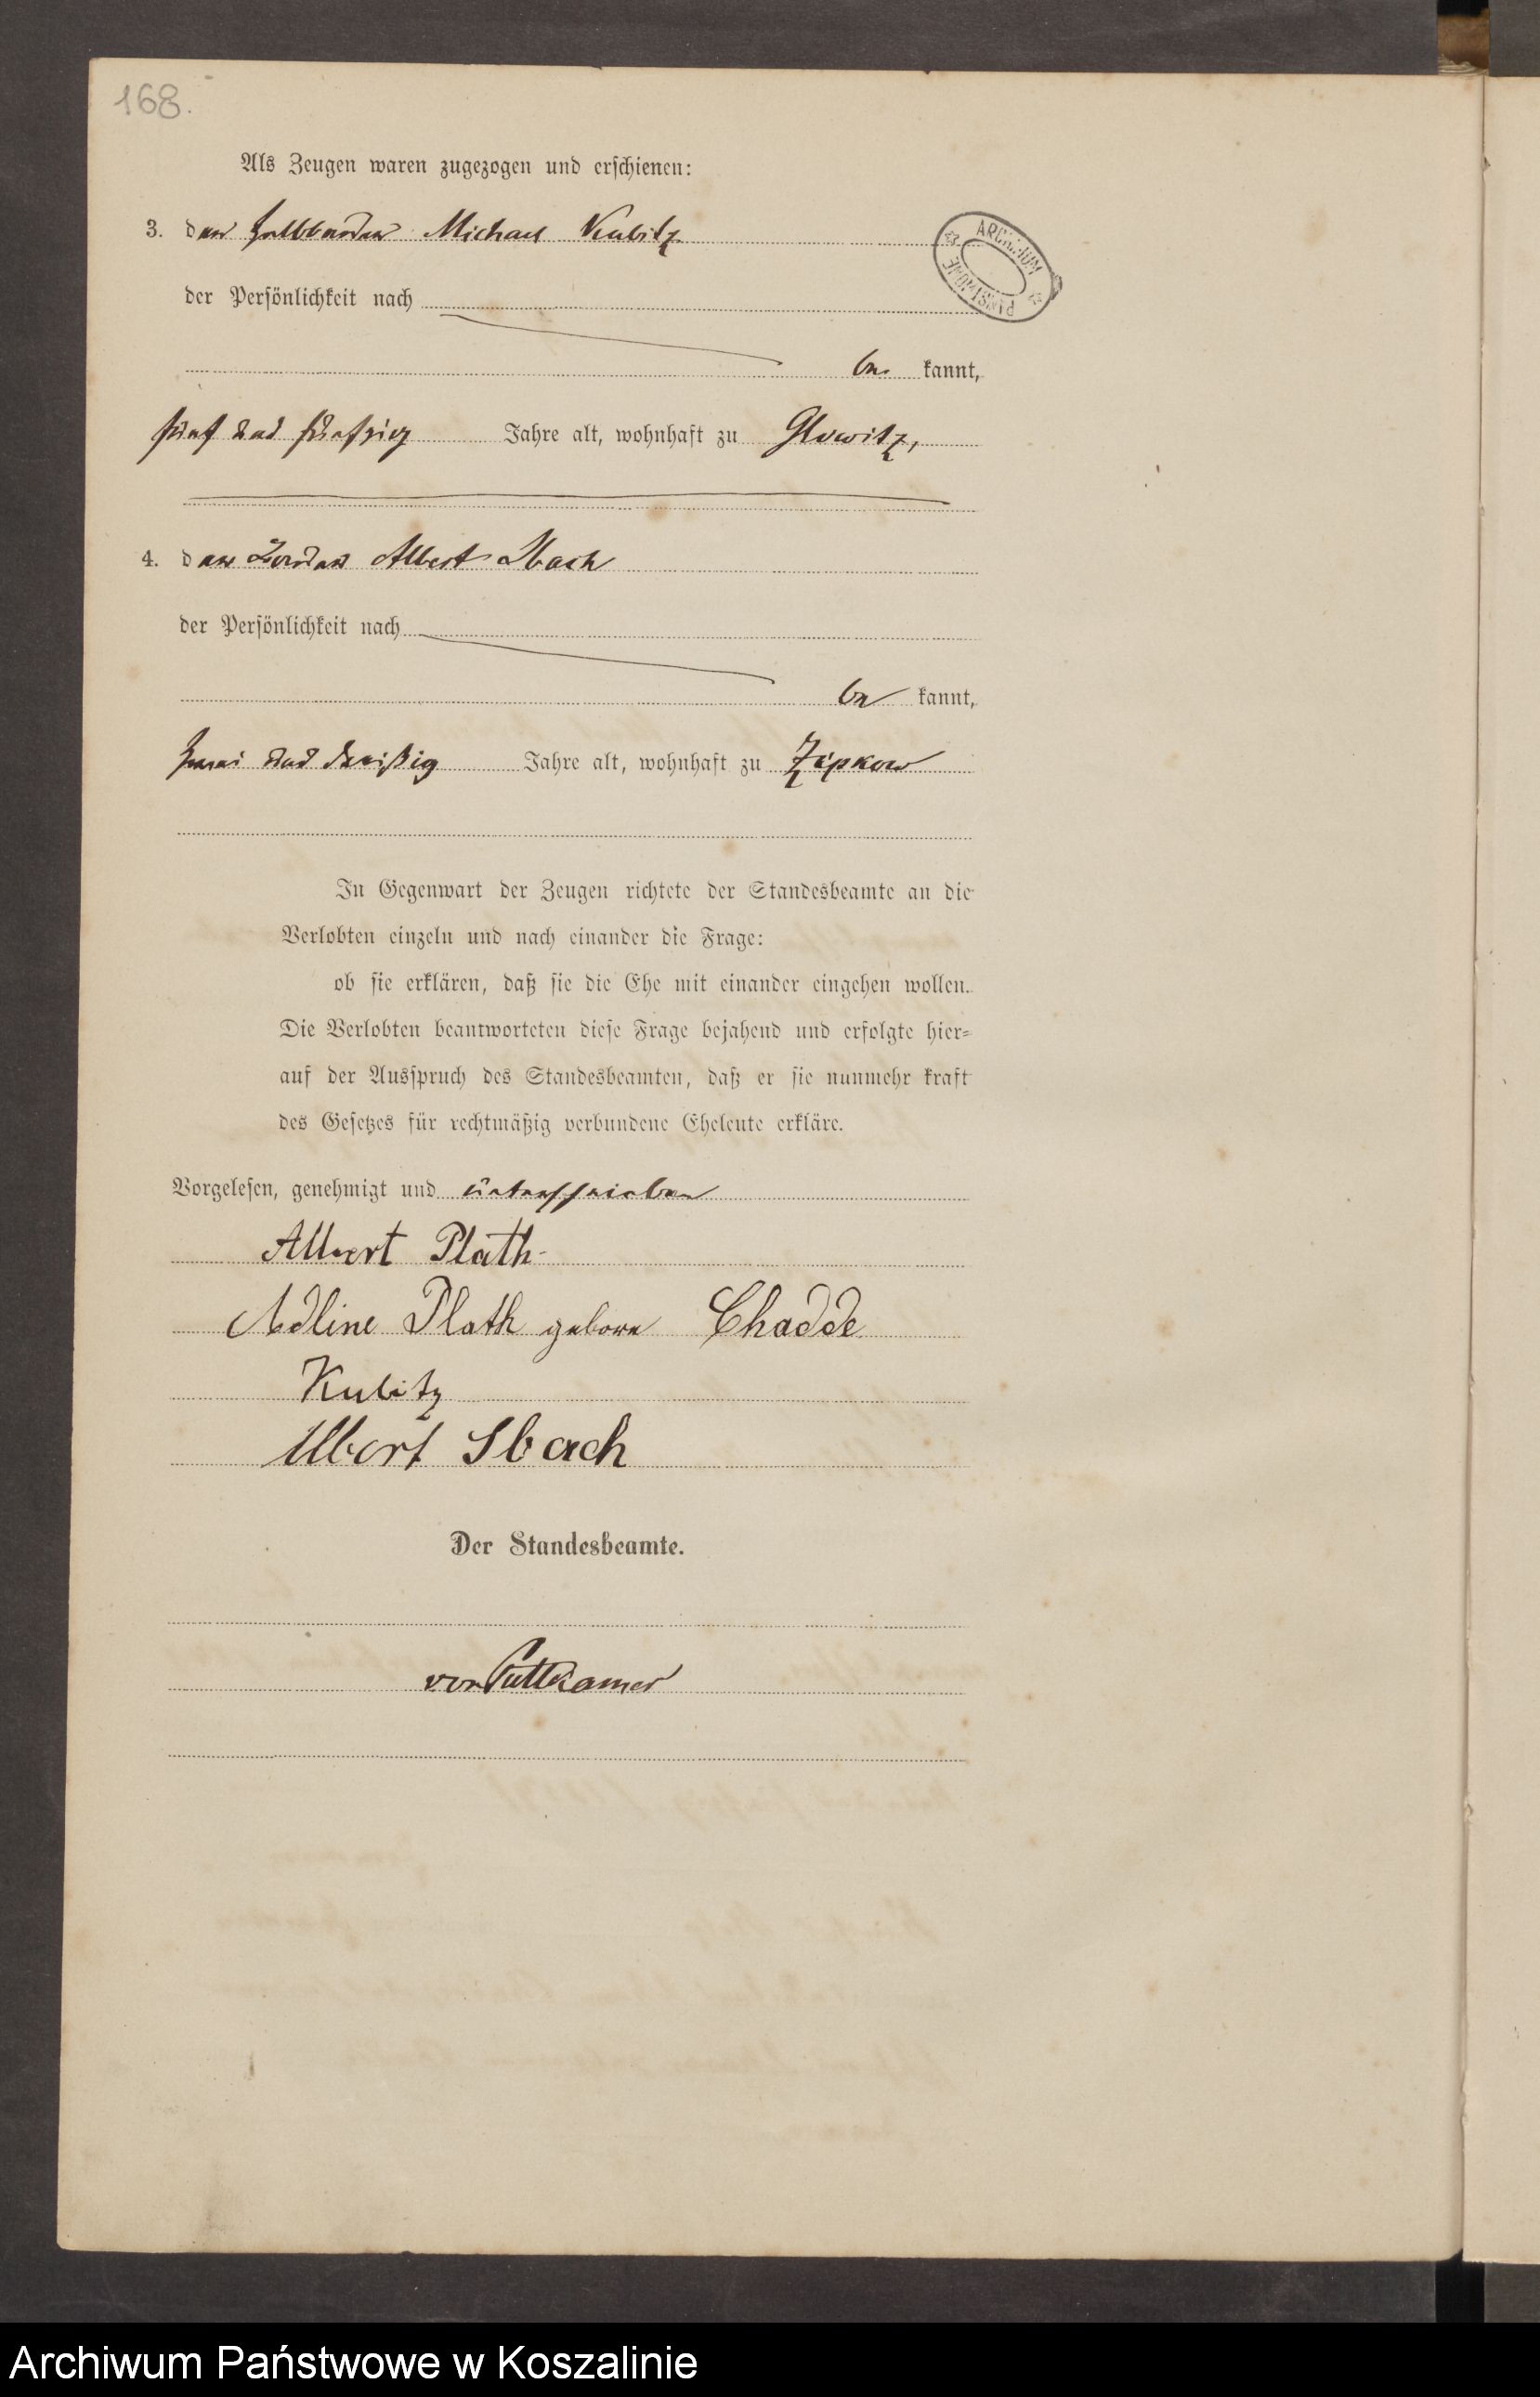 168.
Als Zeugen waren zugezogen und erschienen:
3. der Halbbauer Michael Kubitz
der Persönlichkeit nach
be kannt,
fünf und fünfzig Jahre alt, wohnhaft zu Glowitz,
4. der Albert Ibach
der Persönlichkeit nach
be kannt,
zwei und dreißig Jahre alt, wohnhaft zu Zipkow
In Gegenwart der Zeugen richtete der Standesbeamte an die
Verlobten einzeln und nach einander die Frage:
ob sie erklären, daß sie die Ehe mit einander eingehen wollen.
Die Verlobten beantworteten diese Frage bejahend und erfolgte hier-
auf der Ausspruch des Standesbeamten, daß er sie nunmehr kraft
des Gesetzes für rechtmäßig verbundene Eheleute erkläre.
Vorgelesen, genehmigt und unterschrieben
Albert Plath
Adline Plath geborn Chadde
Kubitz
Albert Ibach
Der Standesbeamte.
von Puttkamer
ARCHIWUM PAŃSTWOWE
Archiwum Państwowe w Koszalinie